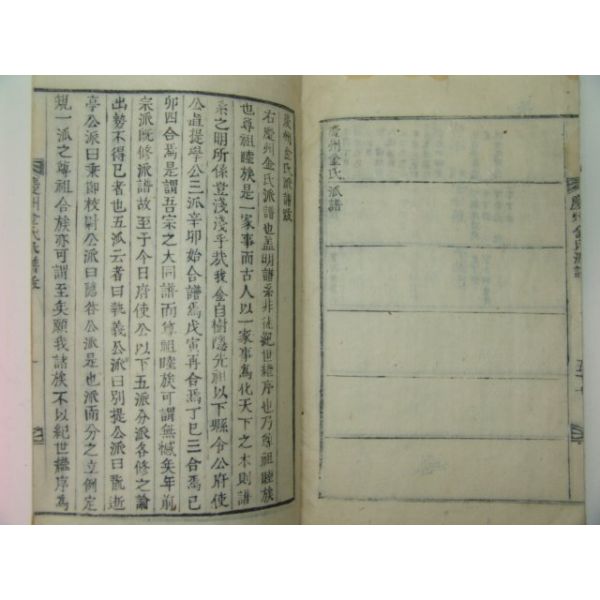 慶州金氏派譜
慶州金氏派譜
慶州金氏派譜跋
右慶州金氏派譜也盖明譜系非徒觀世繼序也乃尊祖睦族
也尊祖睦族是一家事而古人以一家事爲化天下之本則譜
系之明所係豈淺淺乎哉我金自樹隱先祖以下縣令公府使
公直提學公三派辛卯始合譜焉戊寅再合焉丁巳三合焉己
卯四合焉是謂吾宗之大同譜而尊祖睦族可謂無憾矣年前
宗派旣修派譜故至于今日府使公以下五派分派各修之論
出勢不得已者也五派云者曰執義公派曰別提公派曰逝
亭公派曰秉節校尉公派曰隱公派是也派而分之立例定
規一派之尊祖合族亦可謂至矣願我諸族不以紀世繼序爲
慶州金氏派譜跋 一